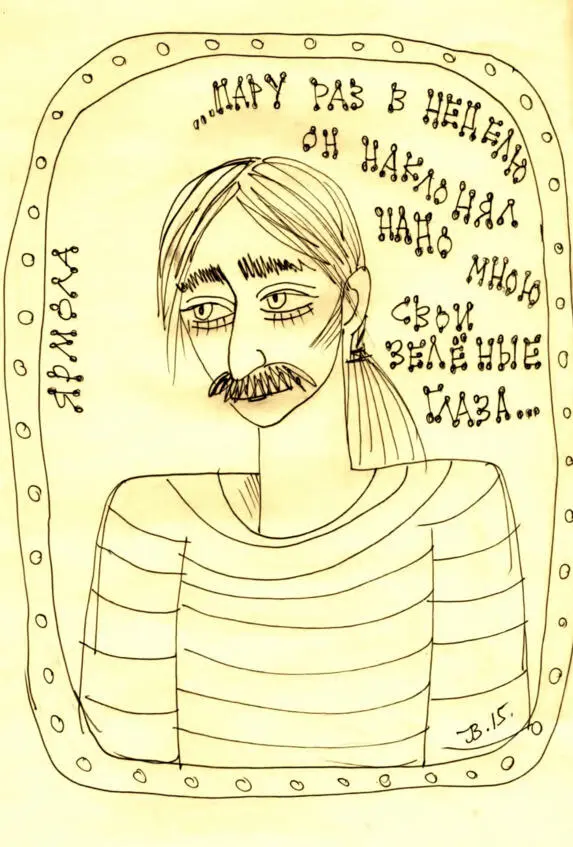 ...ПАРУ РАЗ В НЕДЕЛЮ
ОН НАКЛОНЯЛ
НАНО
МНОЮ
СВОИ
ЗЕЛЁНЫЕ
ГЛАЗА...
ЯРМОЛА
JB.15.